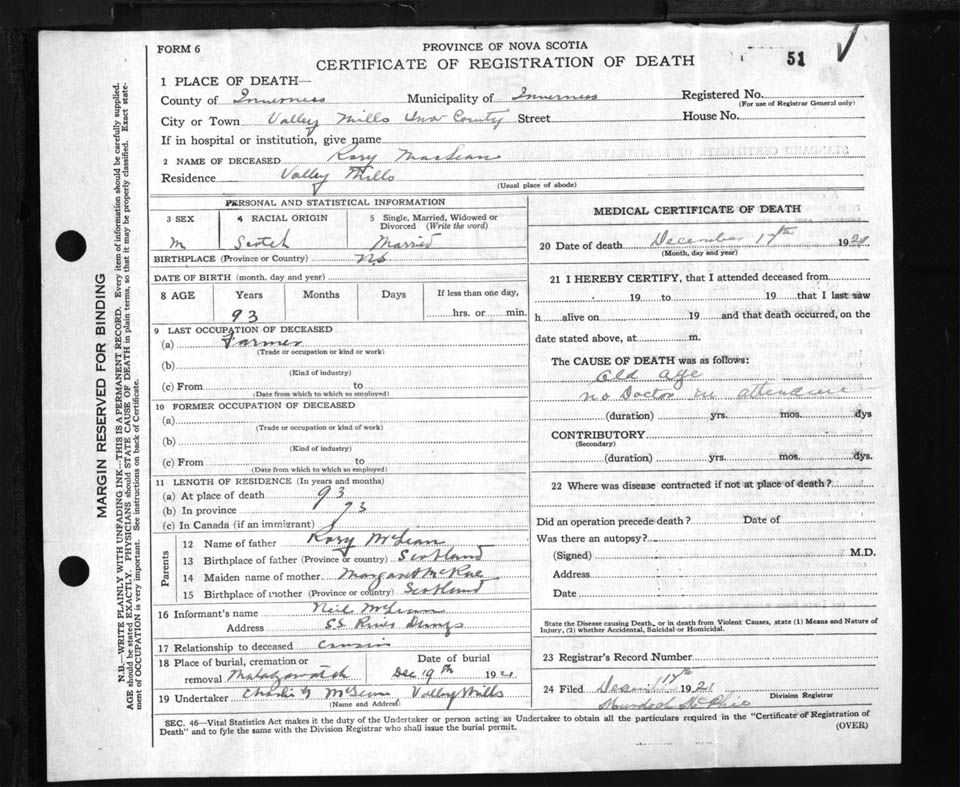 FORM 6
PROVINCE OF NOVA SCOTIA
CERTIFICATE OF REGISTRATION OF DEATH
51
1 PLACE OF DEATH—
County of Inverness Municipality of Inverness Registered No.
(For use of Registrar General only)
City or Town Valley Mills Inv County Street House No.
If in hospital or institution, give name
2 NAME OF DECEASED Rory MacLean
Residence Valley Mills
(Usual place of abode)
PERSONAL AND STATISTICAL INFORMATION
3 SEX 4 RACIAL ORIGIN 5 Single, Married, Widowed or Divorced (Write the word)
M Scotch Married
BIRTHPLACE (Province or Country) NS
DATE OF BIRTH (month, day and year)
8 AGE Years Months Days If less than one day,
93 hrs. or min.
9 LAST OCCUPATION OF DECEASED
(a) Farmer
(Trade or occupation or kind or work)
(b)
(Kind of industry)
(c) From to
(Date from which to which so employed)
10 FORMER OCCUPATION OF DECEASED
(a)
(Trade or occupation or kind of work)
(b)
(Kind of industry)
(c) From to
(Date from which to which so employed)
11 LENGTH OF RESIDENCE (In years and months)
(a) At place of death 93
(b) In province 93
(c) In Canada (if an immigrant)
Parents
12 Name of father Rory McLean
13 Birthplace of father (Province or country) Scotland
14 Maiden name of mother Margaret McRae
15 Birthplace of mother (Province or country) Scotland
16 Informant's name Neil McLean
Address SS River Dennys
17 Relationship to deceased Cousin
18 Place of burial, cremation or Date of burial
removal Malagawatch Dec 19th 1921
19 Undertaker Charlie McLean Valley Mills
(Name and Address)
MEDICAL CERTIFICATE OF DEATH
20 Date of death December 17th 1921
(Month, day and year)
21 I HEREBY CERTIFY, that I attended deceased from
19 to 19 that I last saw
h alive on 19 and that death occurred, on the
date stated above, at m.
The CAUSE OF DEATH was as follows:
Old age
no Doctor in attendance
(duration) yrs. mos. dys
CONTRIBUTORY
(Secondary)
(duration) yrs. mos. dys.
22 Where was disease contracted if not at place of death?
Did an operation precede death? Date of
Was there an autopsy?
(Signed) M.D.
Address
Date
State the Disease causing Death, or in death from Violent Causes, state (1) Means and Nature of
Injury, (2) whether Accidental, Suicidal or Homicidal.
23 Registrar's Record Number
24 Filed 17th 1921
Division Registrar
Murdoch McPhie
SEC. 46—Vital Statistics Act makes it the duty of the Undertaker or person acting as Undertaker to obtain all the particulars required in the "Certificate of Registration of
Death" and to fyle the same with the Division Registrar who shall issue the burial permit.
(OVER)
MARGIN RESERVED FOR BINDING
N.B.—WRITE PLAINLY WITH UNFADING INK—THIS IS A PERMANENT RECORD. Every item of information should be carefully supplied.
AGE should be stated EXACTLY. PHYSICIANS should STATE CAUSE OF DEATH in plain terms, so that it may be properly classified. Exact state-
ment of OCCUPATION is very important. See instructions on back of Certificate.